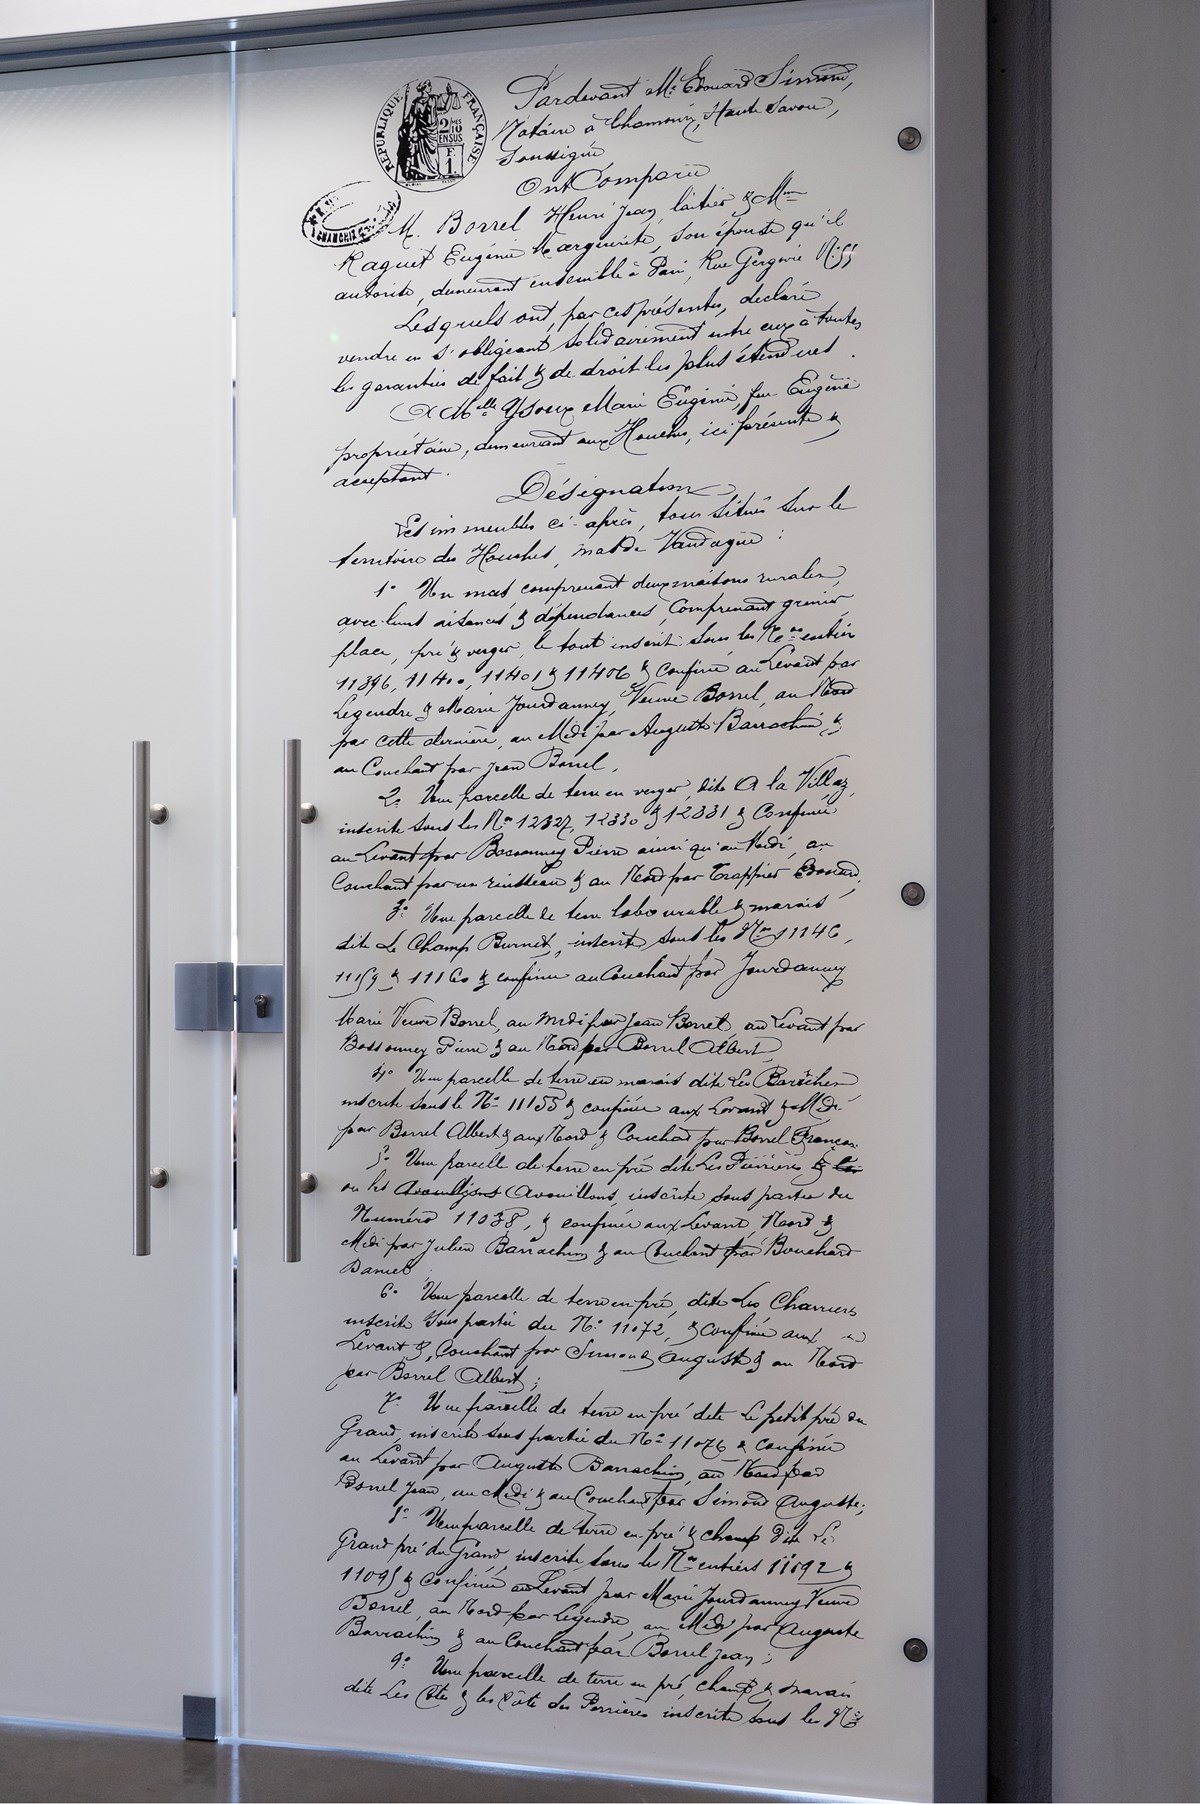 RÉPUBLIQUE FRANÇAISE
2/10
EN SUS
F.
1.
Pardevant Me Edouard Simond,
Notaire à Chamonix, Haute Savoie,
Soussigné
Ont Comparu
M. Borrel Henri Jean, laitier & Mme
Raguet Eugénie Marguerite, son épouse qu'il
autorise, demeurant ensemble à Paris, Rue Gergovie No 55
Lesquels ont, par ces présentes, déclaré
vendre en s'obligeant solidairement entre eux à toutes
les garanties de fait & de droit les plus étendues.
A Melle Marie Eugénie, feu Eugène
propriétaire, demeurant aux Houches, ici présente &
acceptant.
Désignation
Les immeubles ci-après, tous situés sur le
territoire des Houches, mas de Vaudagne :
1o Un mas comprenant deux maisons rurales,
avec leurs aisances & dépendances, comprenant grenier,
place, pré & verger, le tout inscrit sous les Nos entiers
11396, 11400, 11401 & 11406 & confiné au Levant par
Legendre & Marie Jourdanney, Veuve Borrel, au Nord
par cette dernière, au Midi par Auguste Barrachin, &
au Couchant par Jean Borrel.
2o Une parcelle de terre en verger, dite A la Villaz,
inscrite sous les Nos 12327, 12330 & 12331 & confinée
au Levant par Bossonney Pierre ainsi qu'au Midi, au
Couchant par un ruisseau & au Nord par Trappier Edouard,
3o Une parcelle de terre labourable & marais
dite Le Champ Burnet, inscrite sous les Nos 11146,
11159 & 11160 & confinée au Couchant par Jourdanney
Marie Veuve Borrel, au midi par Jean Borrel, au Levant par
Bossonney Pierre & au Nord par Borrel Albert,
4o Une parcelle de terre en marais dite Les
inscrite sous le No 11155 & confinée aux Levant & Midi
par Borrel Albert & aux Nord & Couchant par Borrel François
5o Une parcelle de terre en pré dite Les Perrières, &
ou les Avouillons, inscrite sous partie du
Numéro 11038, & confinée aux Levant, Nord &
Midi par Julien Barrachin & au Couchant par Bouchard
Daniel
6o Une parcelle de terre en pré, dite Les Charriers
inscrite sous partie du No 11072, & confinée aux
Levant & Couchant par Simond Auguste & au Nord
par Borrel Albert ;
7o Une parcelle de terre en pré dite Le petit pré du
Grand, inscrite sous partie du No 11076 & confinée
au Levant par Auguste Barrachin, au Nord par
Borrel Jean, au Midi & au Couchant par Simond Auguste ;
8o Une parcelle de terre en pré & champ dite Le
Grand pré du Grand, inscrite sous les Nos entiers 11092 &
11095 & confinée au Levant par Marie Jourdanney Veuve
Borrel, au Nord par Legendre, au Midi par Auguste
Barrachin & au Couchant par Borrel Jean ;
9o Une parcelle de terre en pré champ & marais
dite Les Côtes & les Côte des Perrières inscrite sous les Nos